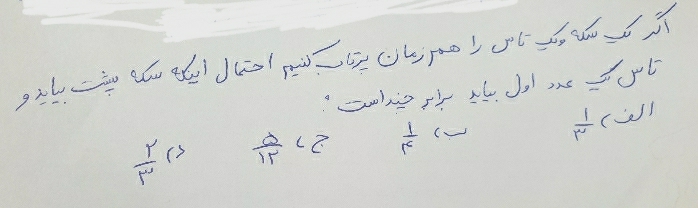 اگر یک سکه و یک تاس را همزمان پرتاب کنیم احتمال اینکه سکه پشت بیاید و
تاس یک عدد اول بیاید برابر چند است:
الف) ۱/۳ ب) ۱/۴ ج) ۵/۱۲ د) ۲/۳